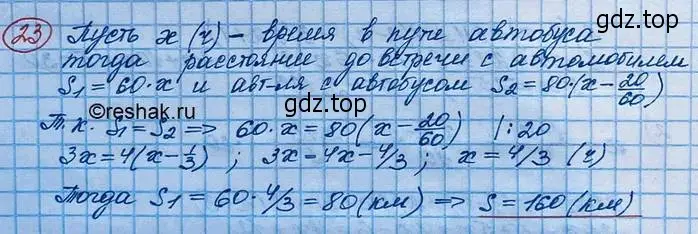 23 Пусть x (ч) - время в пути автобуса
тогда расстояние до встречи с автомобилем
S₁ = 60·x и авт-ля с автобусом S₂ = 80·(x - 20/60)
©reshak.ru
gdz.top
gdz.top
Т.к. S₁ = S₂ => 60·x = 80(x - 20/60) | :20
3x = 4(x - 1/3) ; 3x = 4x - 4/3 ; x = 4/3 (ч)
Тогда S₁ = 60·4/3 = 80 (км) => S = 160 (км)
gdz.top